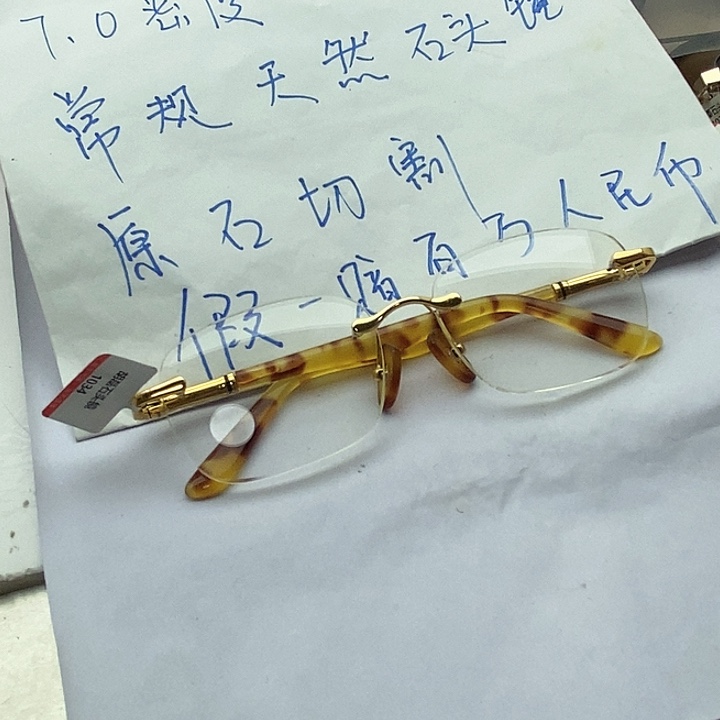 7.0密度
常规天然石头镜
原石切割
假一赔百万人民币
1034